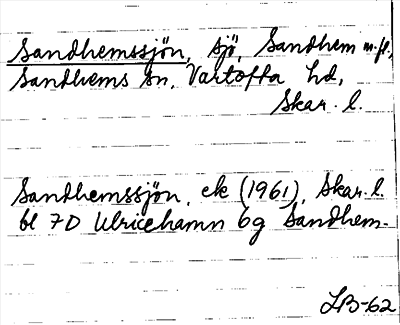 Sandhemssjön, sjö, Sandhem m.fl.,
Sandhems sn, Vartofta hd,
Skar. l.
Sandhemssjön, ek (1961), Skar. l.
bl 7D Ulricehamn 6g Sandhem.
LB-62